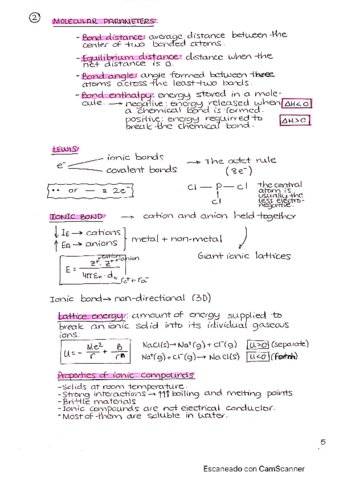 ②
MOLECULAR PARAMETERS:
- Bond distance: average distance between the
center of two bonded atoms.
- Equilibrium distance: distance when the
net distance is 0.
- Bond angle: angle formed between three
atoms across the least two bonds.
- Bond enthalpy: energy stored in a mole-
cule. → negative: energy released when ΔH<0
a chemical bond is formed.
positive: energy required to ΔH>0
break the chemical bond.
LEWIS:
e⁻ ionic bonds
covalent bonds
→ The octet rule
(8e⁻)
•• or — = 2e⁻
Cl — P — Cl
Cl
The central
atom is
usually the
less electro-
negative.
IONIC BOND: → cation and anion held together
↓ IE → cations
↑ EA → anions
metal + non-metal
Giant ionic lattices
cation anion
E = Z⁺ · Z⁻ / 4πε₀ · d₀
rc⁺ + ra⁻
Ionic bond → non-directional (3D)
Lattice energy: amount of energy supplied to
break an ionic solid into its idividual gaseous
ions.
U = - Me²/r + B/rⁿ
NaCl(s) → Na⁺(g) + Cl⁻(g) U>0 (separate)
Na⁺(g) + Cl⁻(g) → NaCl(s) U<0
Properties of ionic compounds
- Solids at room temperature.
- Strong interactions → ↑↑↑ boiling and melting points
- Brittle materials
- Ionic compounds are not electrical conductor.
- Most of them are soluble in water.
5
Escaneado con CamScanner